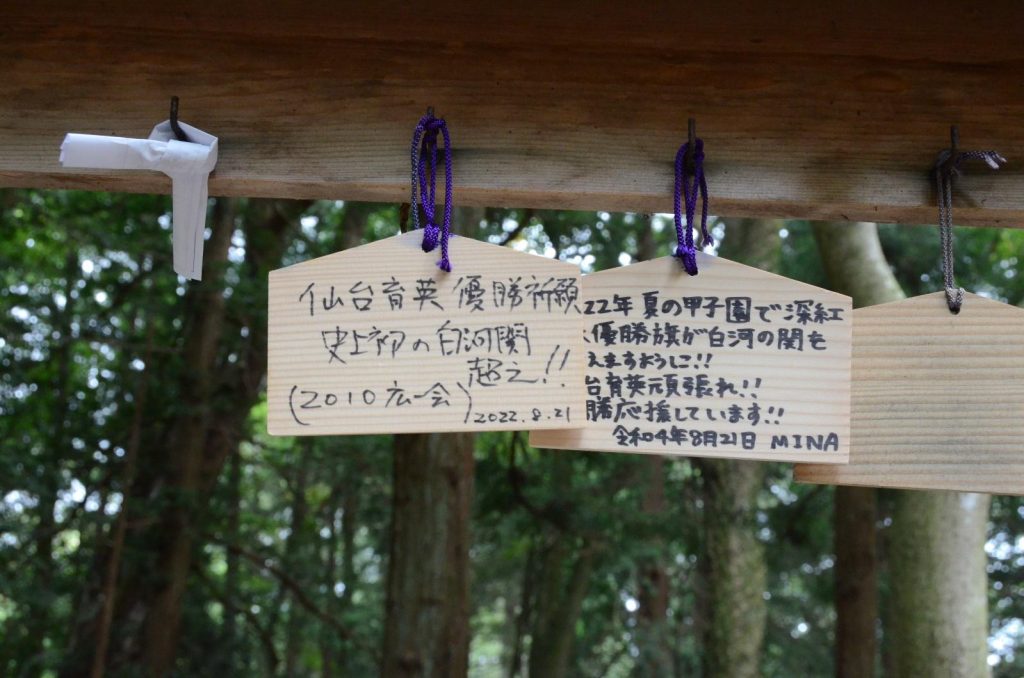 仙台育英優勝祈願
史上初の白河関
超え!!
(2010広一会)
2022.8.21
22年夏の甲子園で深紅
優勝旗が白河の関を
えますように!!
台育英頑張れ!!
勝応援しています!!
令和4年8月21日 MINA